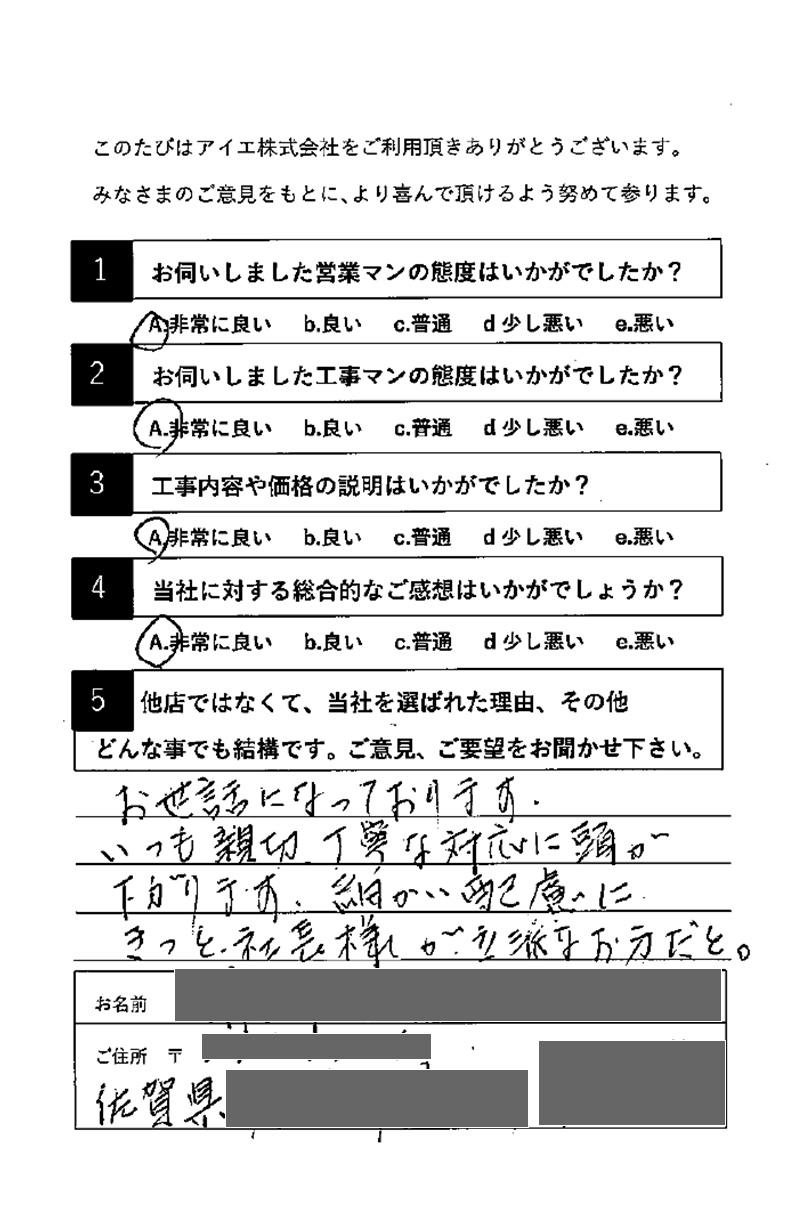 このたびはアイエ株式会社をご利用頂きありがとうございます。
みなさまのご意見をもとに、より喜んで頂けるよう努めて参ります。
1 お伺いしました営業マンの態度はいかがでしたか?
A.非常に良い b.良い c.普通 d 少し悪い e.悪い
2 お伺いしました工事マンの態度はいかがでしたか?
A.非常に良い b.良い c.普通 d 少し悪い e.悪い
3 工事内容や価格の説明はいかがでしたか?
A.非常に良い b.良い c.普通 d 少し悪い e.悪い
4 当社に対する総合的なご感想はいかがでしょうか?
A.非常に良い b.良い c.普通 d 少し悪い e.悪い
5 他店ではなくて、当社を選ばれた理由、その他
どんな事でも結構です。ご意見、ご要望をお聞かせ下さい。
お世話になっております。
いつも親切、丁寧な対応に頭が
下がります。細かい配慮に
きっと社長様が立派なお方だと。
お名前
ご住所 〒
佐賀県